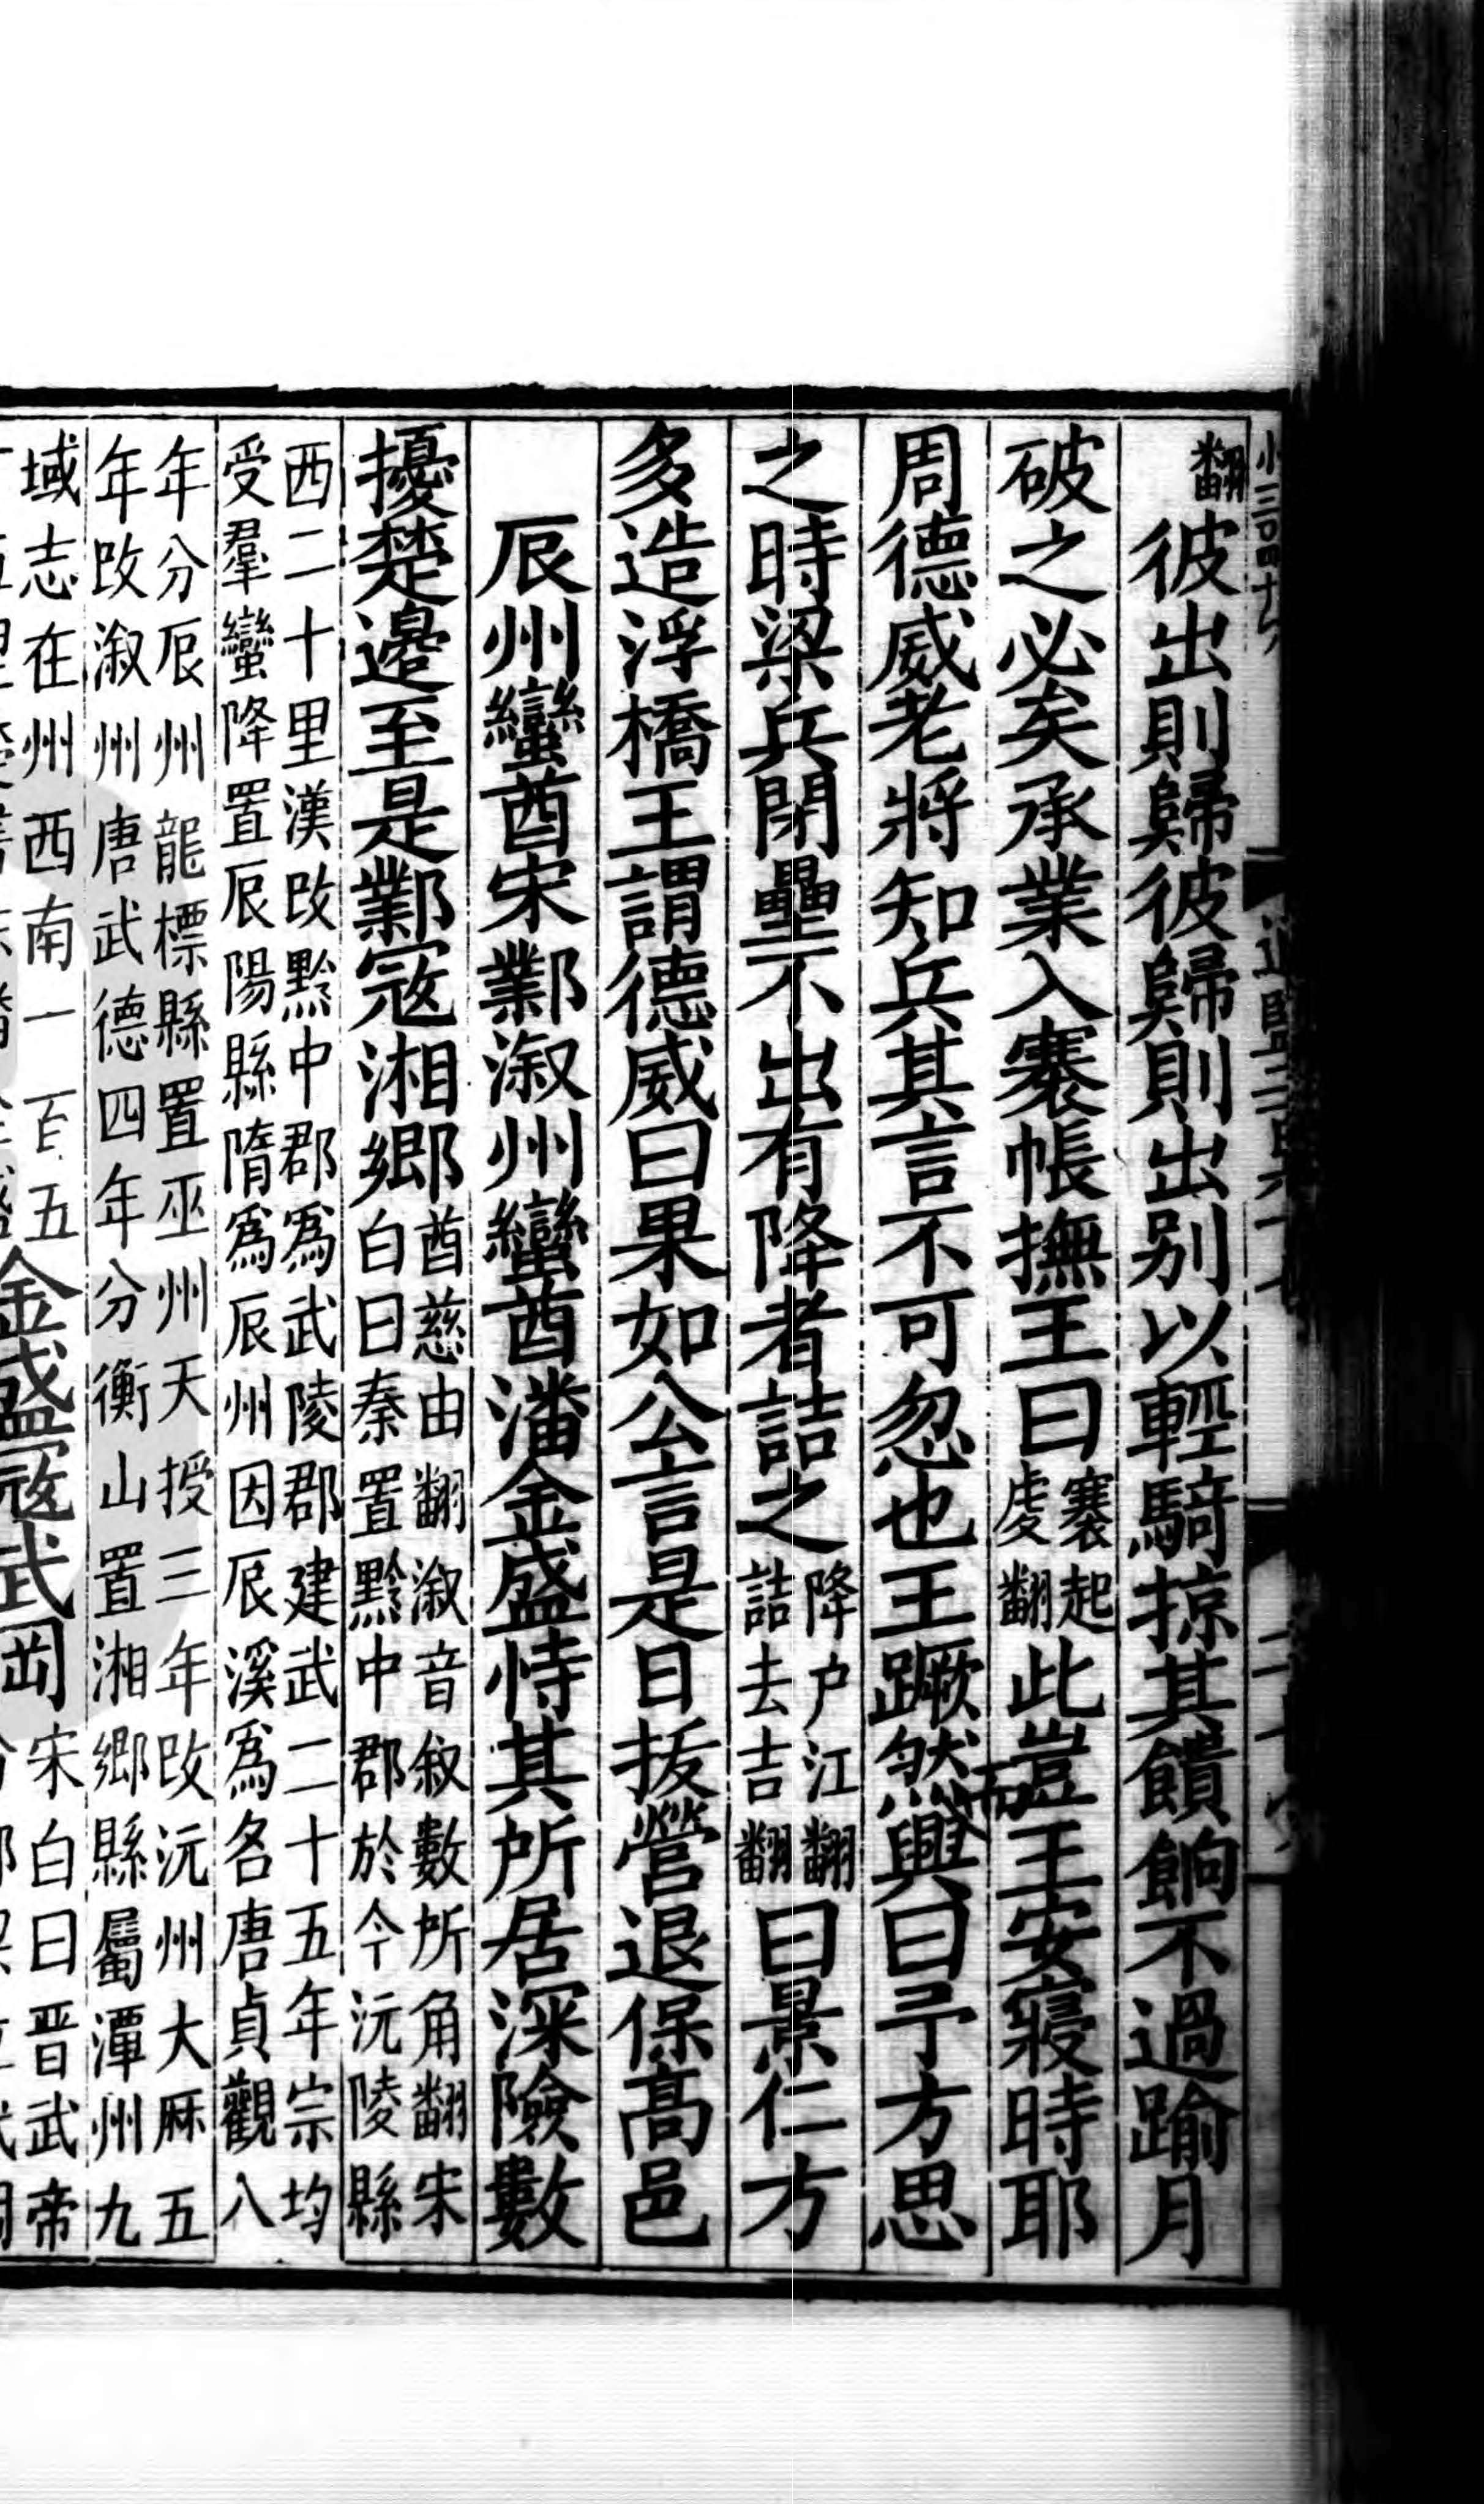 翻彼出則歸彼歸則出别以輕騎掠其饋餉不過踰月
破之必矣承業入褰帳撫王曰褰起虔翻此豈王安寢時耶
周德威老將知兵其言不可忽也王蹶然而興曰予方思
之時梁兵閉壘不出有降者詰之降户江翻詰去吉翻曰景仁方
多造浮橋王謂德威曰果如公言是日拔營退保高邑
辰州蠻酋宋鄴溆州蠻酋潘金盛恃其所居深險數
擾楚邊至是鄴宼湘鄉酋慈由翻溆音叙數所角翻宋白曰秦置黔中郡於今沅陵縣
西二十里漢改黔中郡爲武陵郡建武二十五年宗均
受羣蠻降置辰陽縣隋爲辰州因辰溪爲名唐貞觀八
年分辰州龍標縣置巫州天授三年改沅州大厤五
年改溆州唐武德四年分衡山置湘鄉縣屬潭州九
域志在州西南一百五
金盛宼武岡宋白曰晋武帝